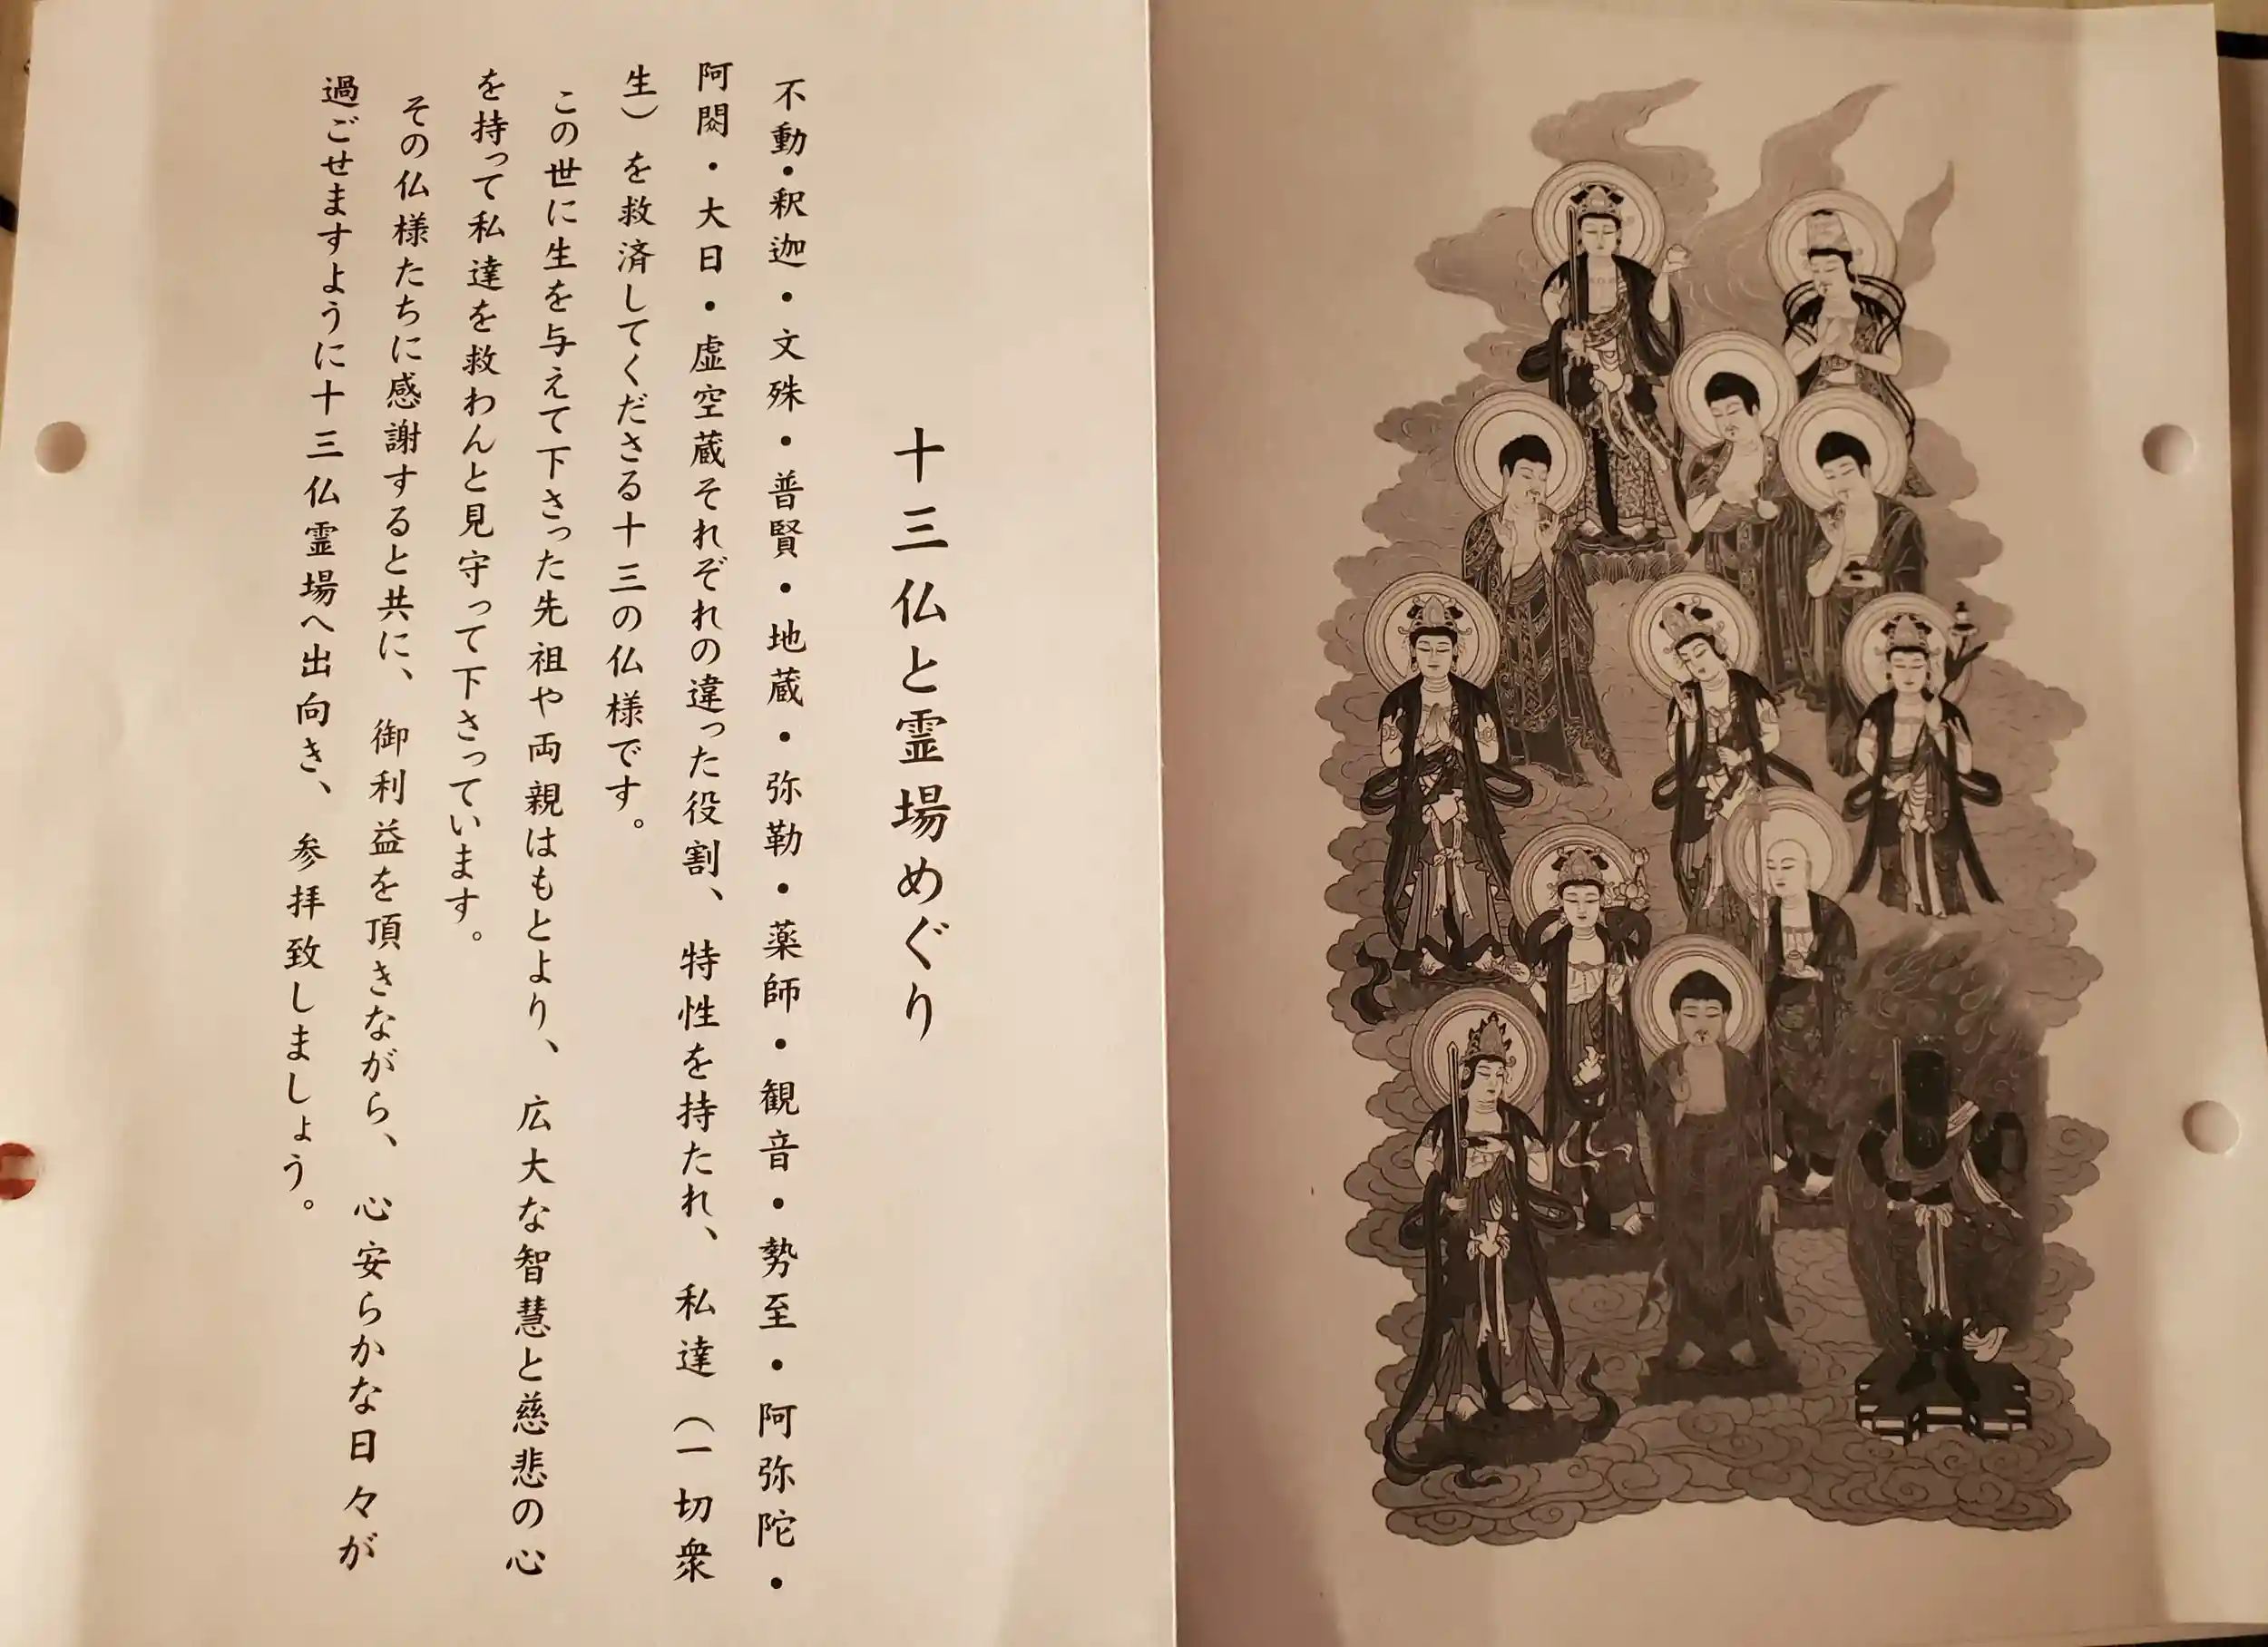 十三仏と霊場めぐり
不動・釈迦・文殊・普賢・地蔵・弥勒・薬師・観音・勢至・阿弥陀・
阿閦・大日・虚空蔵それぞれの違った役割、特性を持たれ、私達（一切衆
生）を救済してくださる十三の仏様です。
この世に生を与えて下さった先祖や両親はもとより、広大な智慧と慈悲の心
を持って私達を救わんと見守って下さっています。
その仏様たちに感謝すると共に、御利益を頂きながら、心安らかな日々が
過ごせますように十三仏霊場へ出向き、参拝致しましょう。